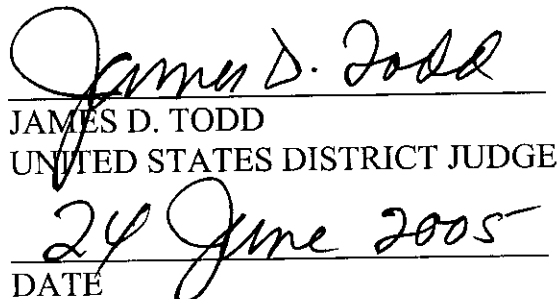 James D. Todd
JAMES D. TODD
UNITED STATES DISTRICT JUDGE
24 June 2005
DATE